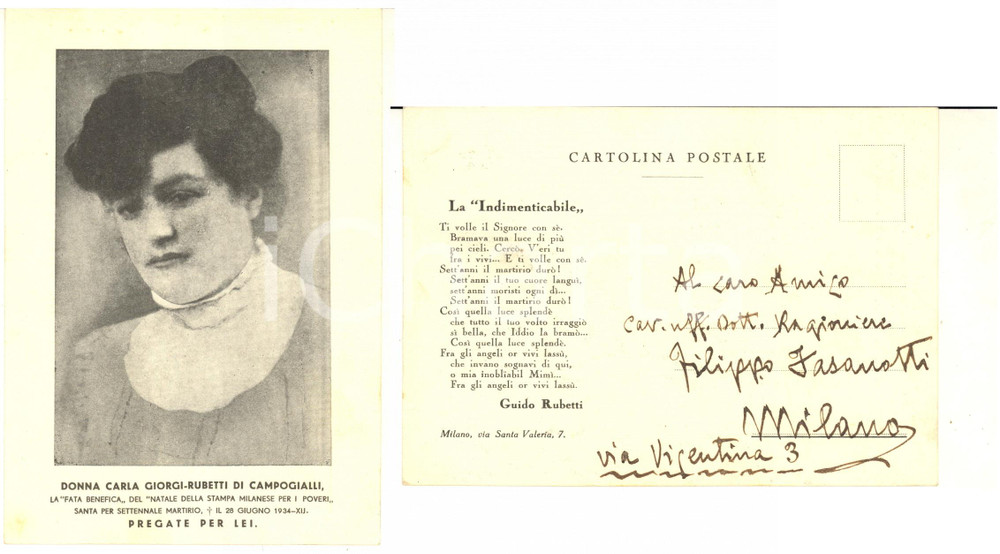 DONNA CARLA GIORGI-RUBETTI DI CAMPOGIALLI,
LA "FATA BENEFICA„ DEL "NATALE DELLA STAMPA MILANESE PER I POVERI„
SANTA PER SETTENNALE MARTIRIO, † IL 28 GIUGNO 1934-XII.
PREGATE PER LEI.
CARTOLINA POSTALE
La "Indimenticabile„
Ti volle il Signore con sè.
Bramava una luce di più
pei cieli. Cercò. V'eri tu
fra i vivi... E ti volle con sè.
Sett'anni il martirio durò!
Sett'anni il tuo cuore languì,
sett'anni moristi ogni dì...
Sett'anni il martirio durò!
Così quella luce splendè
che tutto il tuo volto irraggiò
sì bella, che Iddio la bramò...
Così quella luce splendè.
Fra gli angeli or vivi lassù,
che invano sognavi di qui,
o mia inobliabil Mimì...
Fra gli angeli or vivi lassù.
Guido Rubetti
Milano, via Santa Valeria, 7.
Al caro Amico
Cav. uff. Dott. Ragioniere
Filippo Fasanotti
Milano
via Vigentina 3